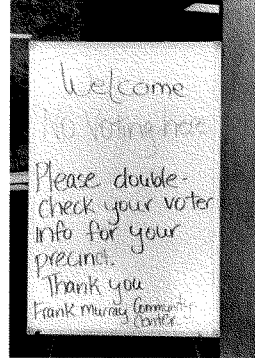 Welcome
No Voting here
Please double-
check your voter
info for your
precinct.
Thank you
Frank Murray Community
Center